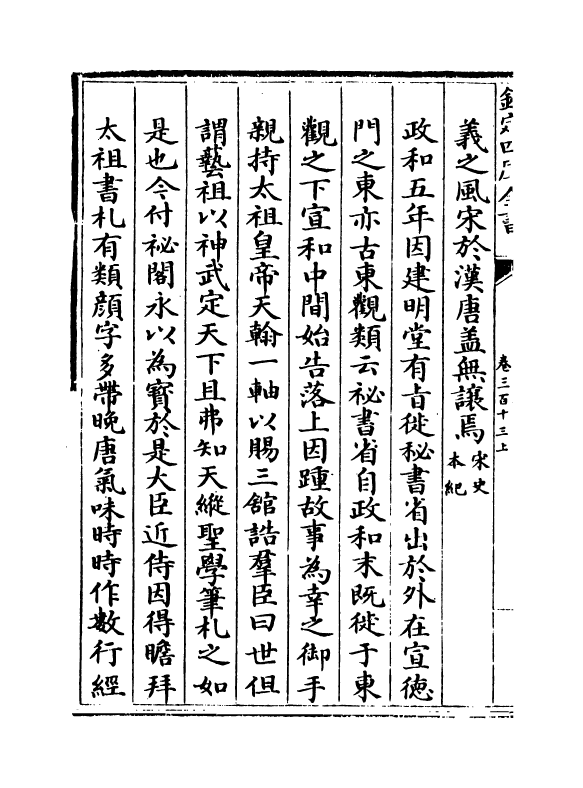 欽定四庫全書
卷三百十三上
義之風宋於漢唐盖無讓焉宋史本紀
政和五年因建明堂有旨徙秘書省出於外在宣德
門之東亦古東觀類云祕書省自政和末既徙于東
觀之下宣和中間始告落上因踵故事為幸之御手
親持太祖皇帝天翰一軸以賜三舘誥羣臣曰世但
謂藝祖以神武定天下且弗知天縱聖學筆札之如
是也今付祕閣永以為寳於是大臣近侍因得瞻拜
太祖書札有類顔字多帶晚唐氣味時時作數行經